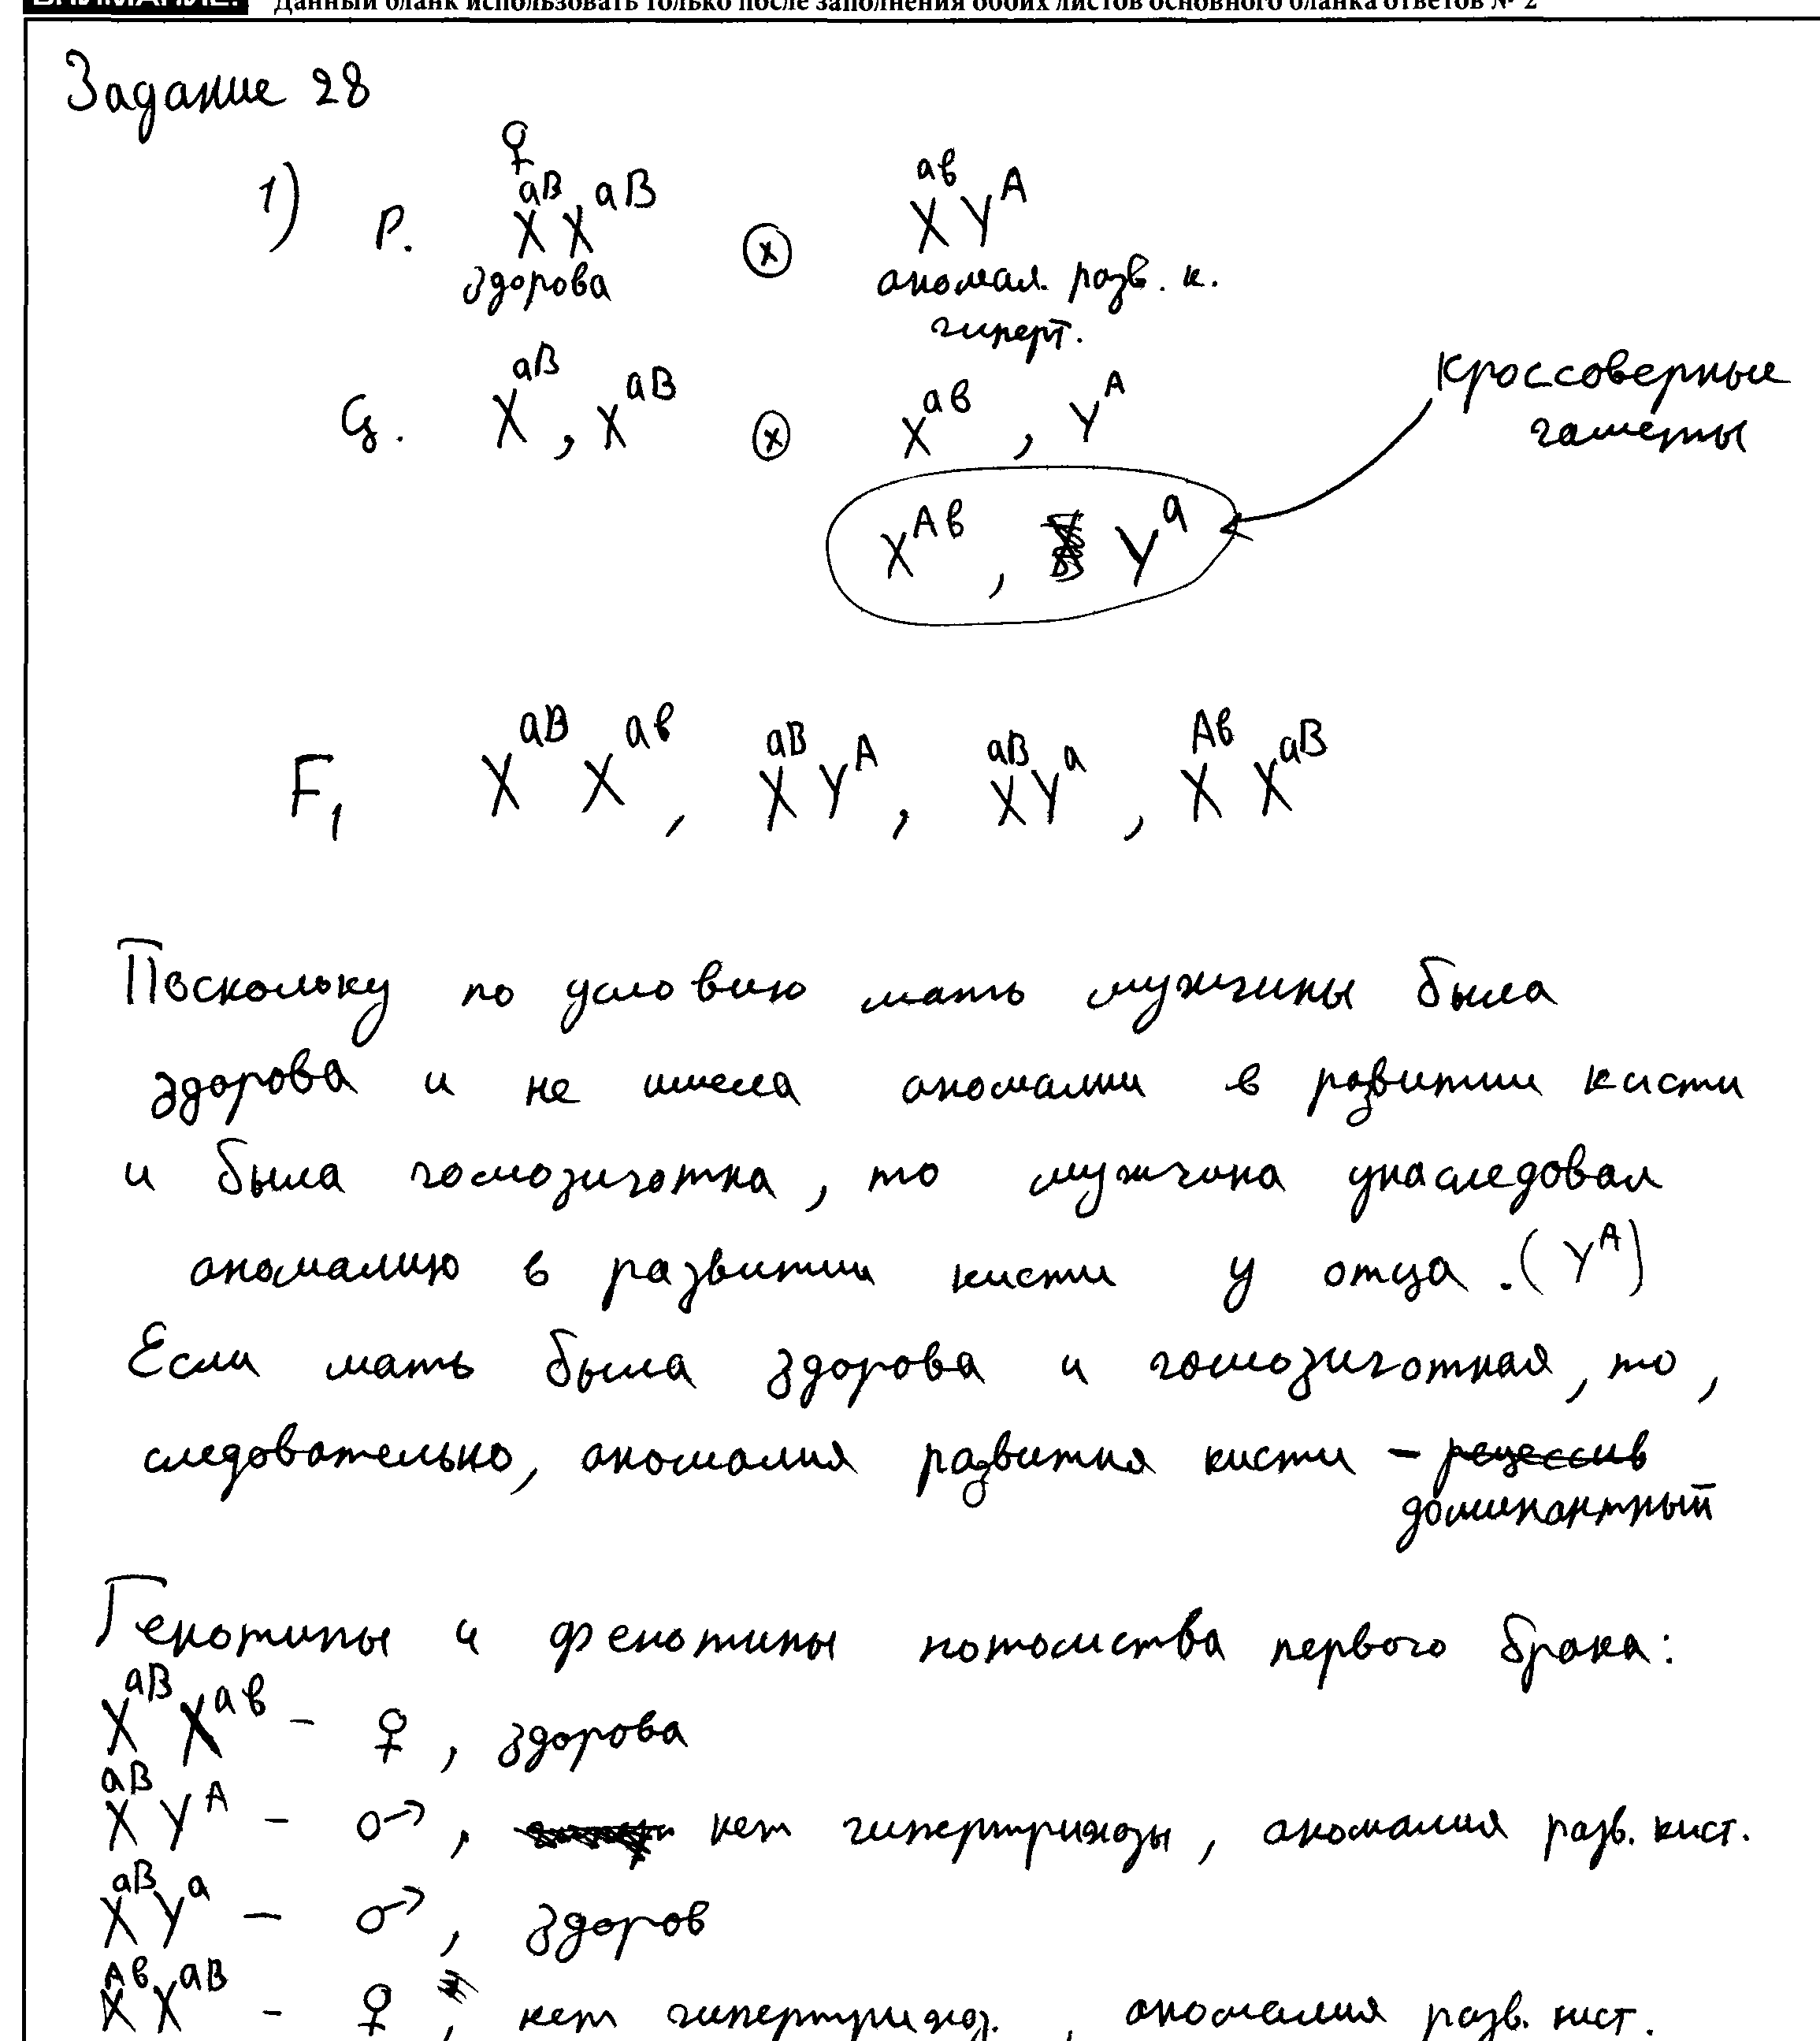 Данный бланк использовать только после заполнения обоих листов основного бланка ответов № 2
Задание 28
♀
1) P. X^aB X^aB ⊗ X^ав Y^A
здорова аномал. разв. к.
гиперт.
G. X^aB, X^aB ⊗ X^ав, Y^A
кроссоверные
гаметы
X^Aв, Y^a
F₁ X^aB X^ав, X^aB Y^A, X^aB Y^a, X^Aв X^aB
Поскольку по условию мать мужчины была
здорова и не имела аномалии в развитии кисти
и была гомозиготна, то мужчина унаследовал
аномалию в развитии кисти у отца. (Y^A)
Если мать была здорова и гомозиготная, то,
следовательно, аномалия развития кисти – рецессив
доминантный
Генотипы и фенотипы потомства первого брака:
X^aB X^ав – ♀, здорова
X^aB Y^A – ♂, нет гипертрихозы, аномалия разв. кист.
X^aB Y^a – ♂, здоров
X^Aв X^aB – ♀, нет гипертрихоз., аномалия разв. кист.